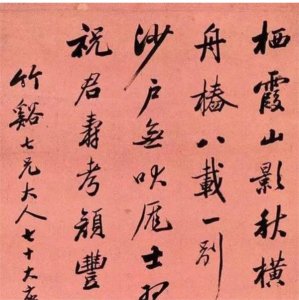 栖霞山影秋橫
舟椿八載一別
沙户無吠厖士習
祝君壽考頟豐
竹谿七兄大人七十大慶